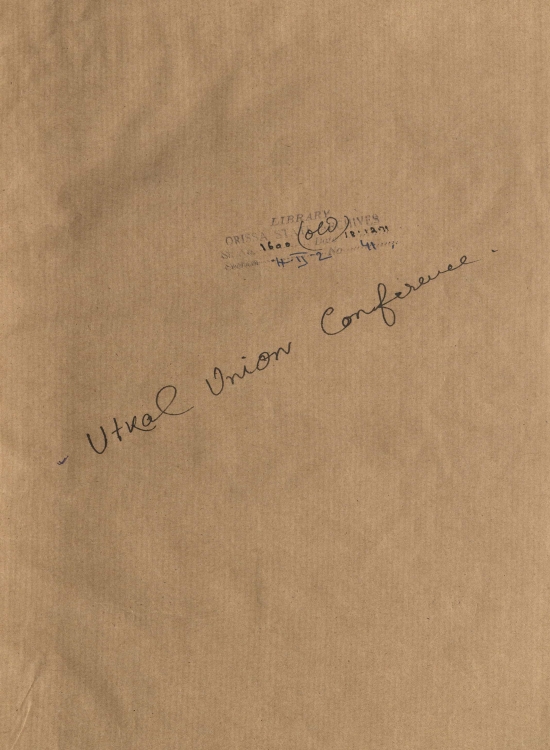 LIBRARY
ORISSA STATE ARCHIVES
1600 (old) 18.12.71
II-2 41
Utkal Union Conference.